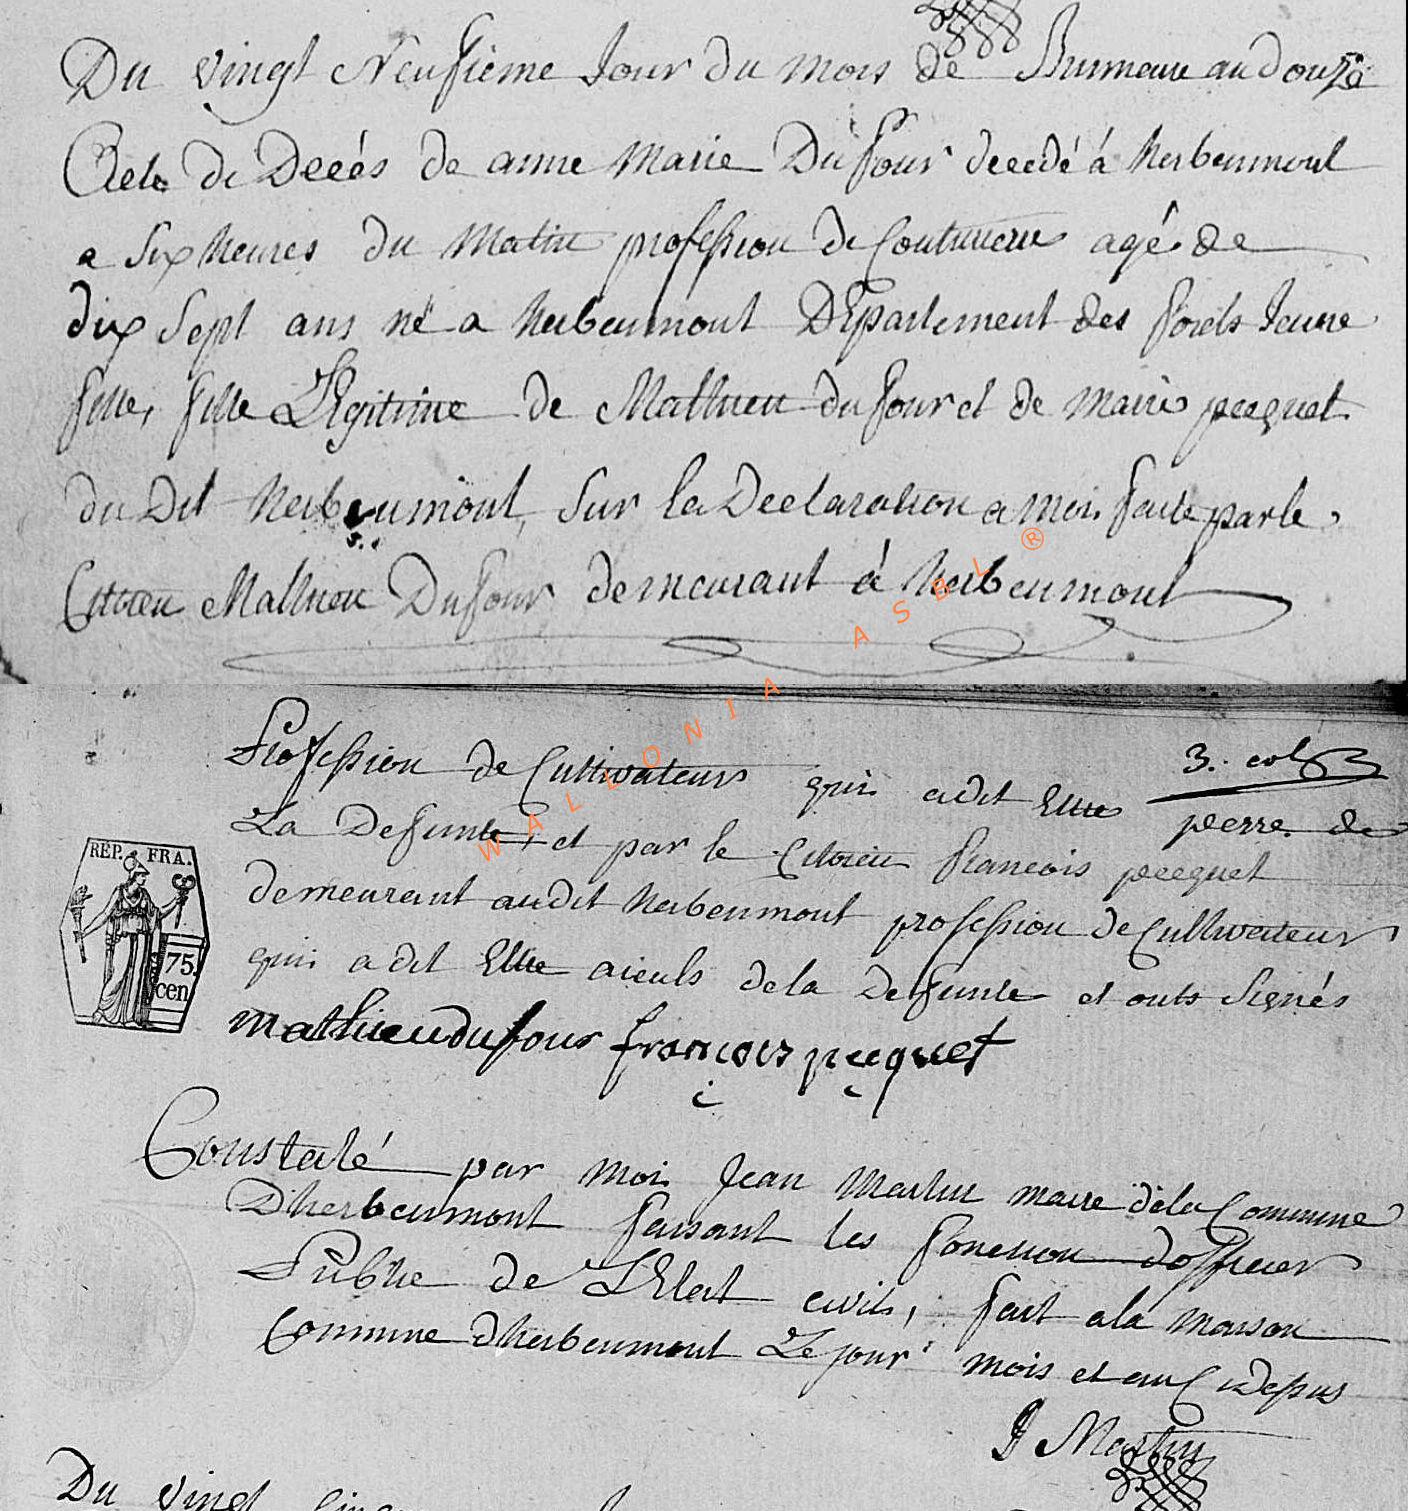 Du vingt Neufieme Jour du mois de Brumaire an douze
Acte de Decés de anne Marie Dufour decedé á herbeumont
a six heures du Matin profession de Couturiere agé de
dix sept ans né a herbeumont DEpartement des forets Jeune
fille, fille LEgitime de Mathieu du four et de marie pecquet
du Dit herbeumont, sur la Declaration a moi faite par le
Citoien Mathieu Dufour demeurant á herbeumont
WALLONIA ASBL ®
3.
Profession de Cultivateur qui a dit Etre perre de
La Defunte, et par le Citoien francois pecquet
demeurant audit herbeumont profession de Cultivateur
qui a dit Etre aieuls de la Defunte et onts signés
REP. FRA.
75.
cen
mathieu dufour francois pecquet
Constaté par moi Jean Martin maire de la Commune
D'herbeumont faisant les fonction d'officier
Public de L'Etat civils, fait a la maison
commune d'herbeumont Le jour mois et an Cidepus
J Martin
Du vingt cinq